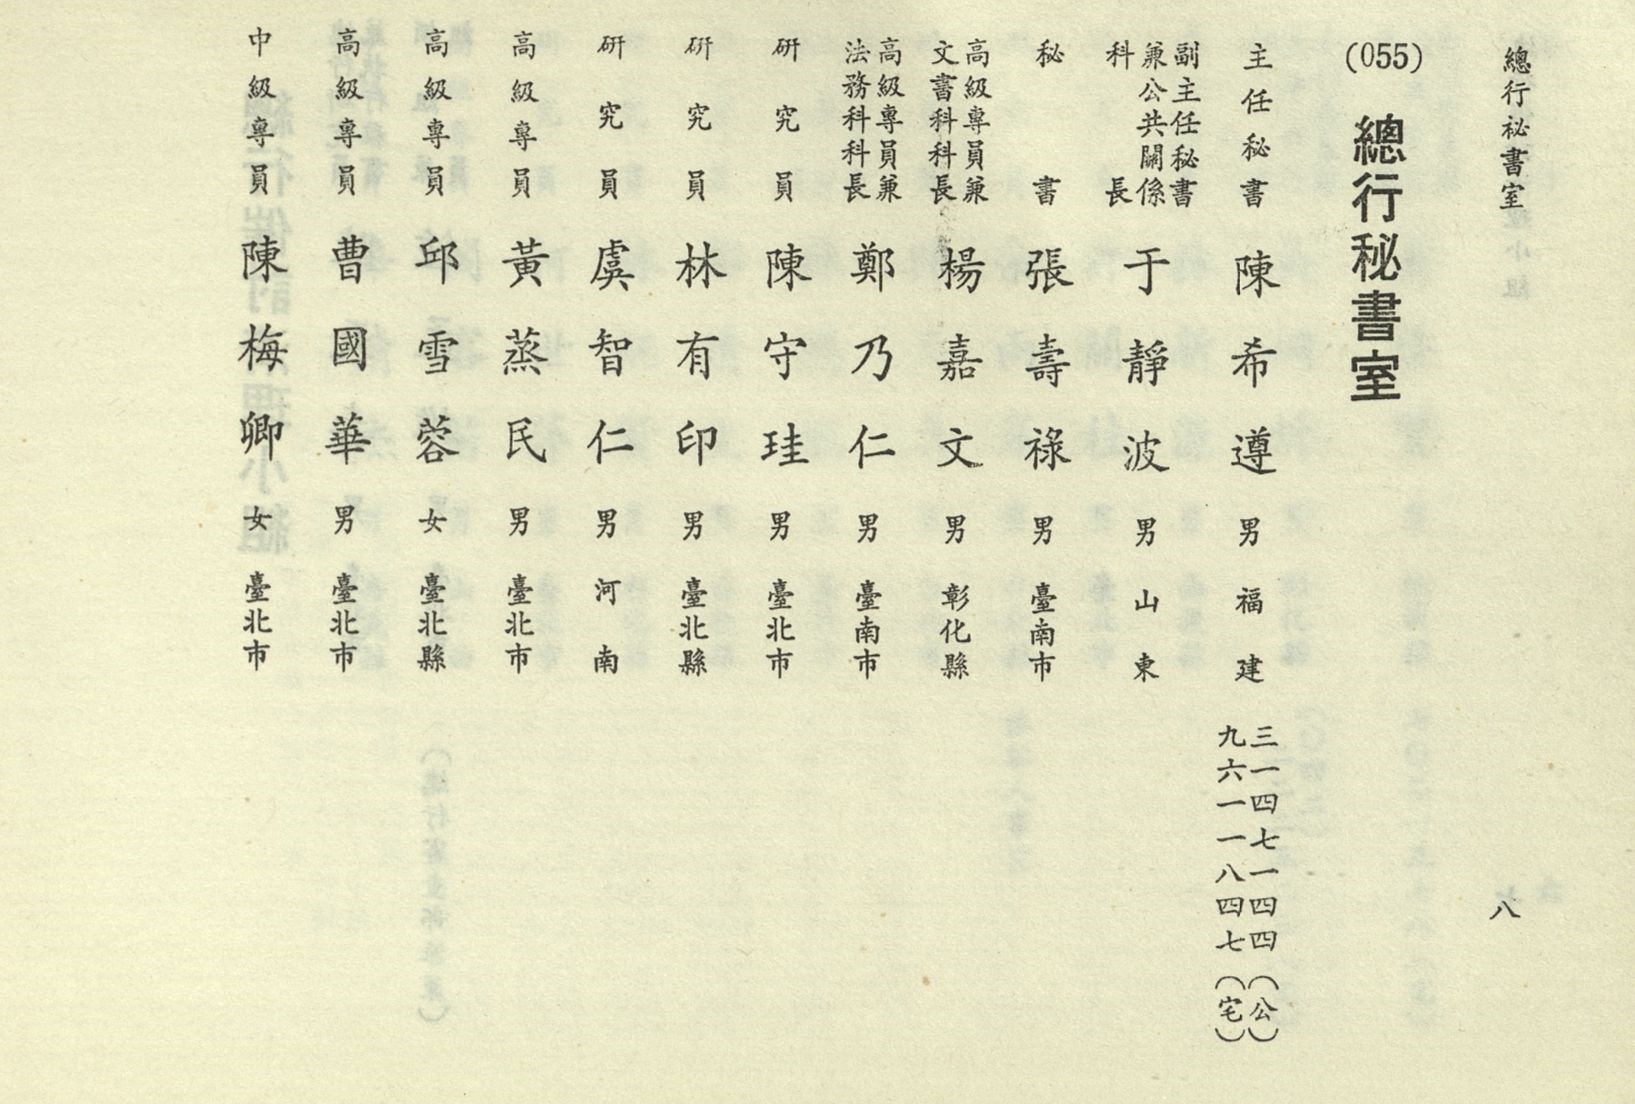 總行祕書室
八
(055) 總行秘書室
主任秘書 陳希遵 男 福建 三一四七一四四(公)
九六一一八四七(宅)
副主任秘書
兼公共關係
科長 于靜波 男 山東
秘書 張壽祿 男 臺南市
高級專員兼
文書科科長 楊嘉文 男 彰化縣
高級專員兼
法務科科長 鄭乃仁 男 臺南市
研究員 陳守珪 男 臺北市
研究員 林有印 男 臺北縣
研究員 虞智仁 男 河南
高級專員 黃蒸民 男 臺北市
高級專員 邱雪蓉 女 臺北縣
高級專員 曹國華 男 臺北市
中級專員 陳梅卿 女 臺北市